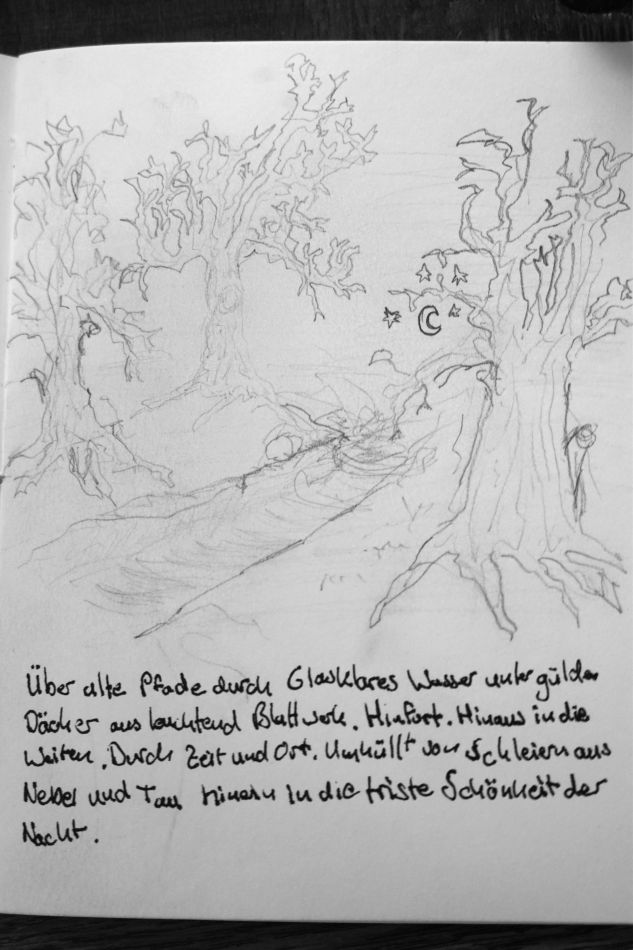 Über alte Pfade durch Glasklares Wasser unter gülden
Dächer aus leuchtend Blattwerk. Hinfort. Hinaus in die
Weiten. Durch Zeit und Ort. Umhüllt von Schleiern aus
Nebel und Tau hinein in die triste Schönheit der
Nacht.